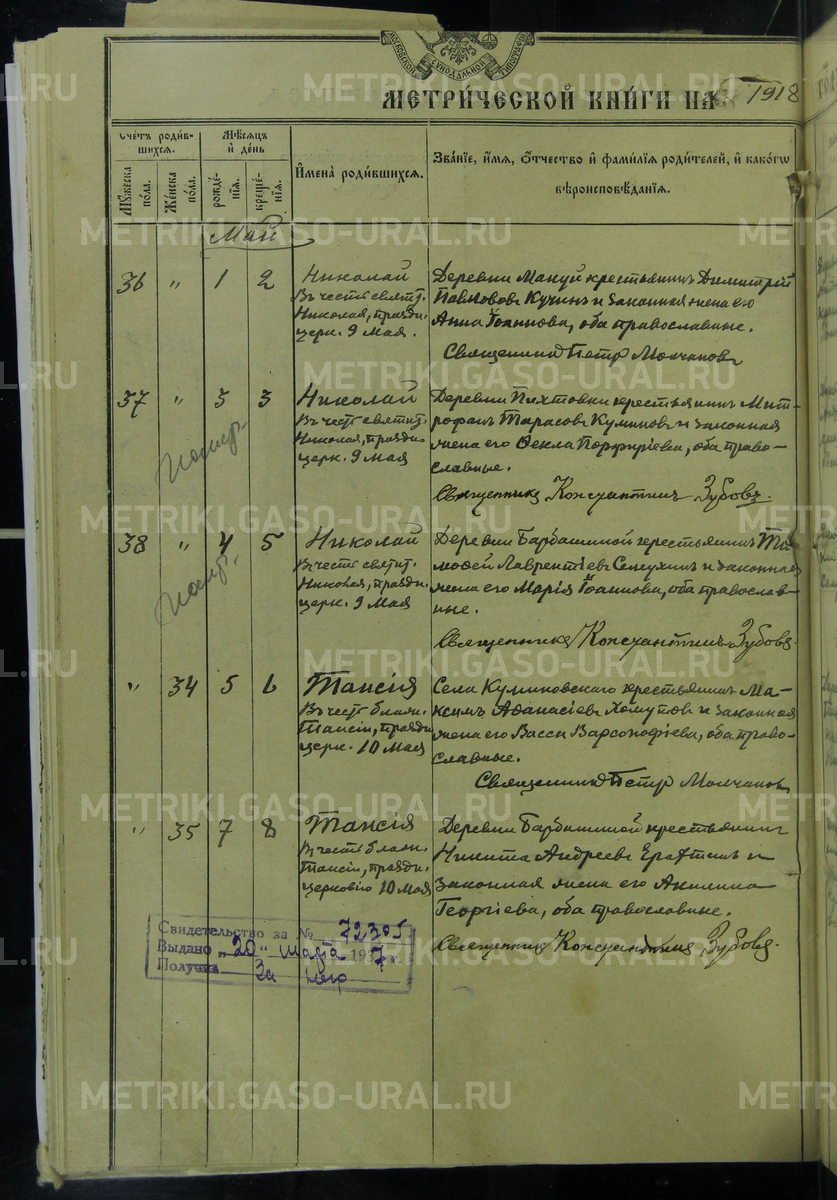 МОСКОВСКОЙ СѴНОДАЛЬНОЙ ТИПОГРАФІИ
МЕТРИ́ЧЕСКОЙ КНИ́ГИ НА 1918
Сче́тъ роди́в-
шихся.
Мѣ́сяцъ
и҆ де́нь
Му́жеска
по́ла.
Же́нска
по́ла.
рожде́-
нїѧ.
креще́-
нїѧ.
И҆мена̀ роди́вшихся.
Зва́нїе, и҆́мя, ѻ҆́тчество и҆ фами́лїя роди́телей, и҆ како́гѡ
вѣроисповѣ́данїя.
Май
36 " 1 2
Николай
Въ честь святит.
Николая, праздн.
церк. 9 Мая.
Деревни Мануй крестьянинъ Димитрій
Павловъ Кучинъ и законная жена его
Анна Іоаннова, оба православные.
Священникъ Петр Молчановъ
37 " 3 3
Николай
Въ честь святит.
Николая, праздн.
церк. 9 Мая
Деревни Пихтовки крестьянинъ Мит-
рофанъ Тарасовъ Куминовъ и законная
жена его Ѳекла Порфиріева, оба право-
славные.
Священникъ Константинъ Зубовъ.
38 " 4 5
Николай
Въ честь святит.
Николая, праздн.
церк. 9 Мая
Деревни Барбашиной крестьянинъ Ти-
моѳей Лаврентіевъ и законная
жена его Марія Іоаннова, оба православ-
ные.
Священникъ Константинъ Зубовъ.
" 34 5 6
Таисія
Въ честь блажн.
Таисіи, праздн.
церк. 10 Мая
Села Куминовскаго крестьянинъ Ма-
ксимъ Аѳанасіевъ Хомутовъ и законная
жена его Васса Варсонофіева, оба право-
славные.
Священникъ Петр Молчановъ
" 35 7 8
Таисія
Въ честь блажн.
Таисіи, праздн.
церковію 10 Мая
Деревни Барбашиной крестьянинъ
Никита Андреевъ и
законная жена его Акилина
Георгіева, оба православные.
Священникъ Константинъ Зубовъ.
Свидетельство за № 72305
Выдано „20" марта 1937 г.
Получил За
METRIKI.GASO-URAL.RU